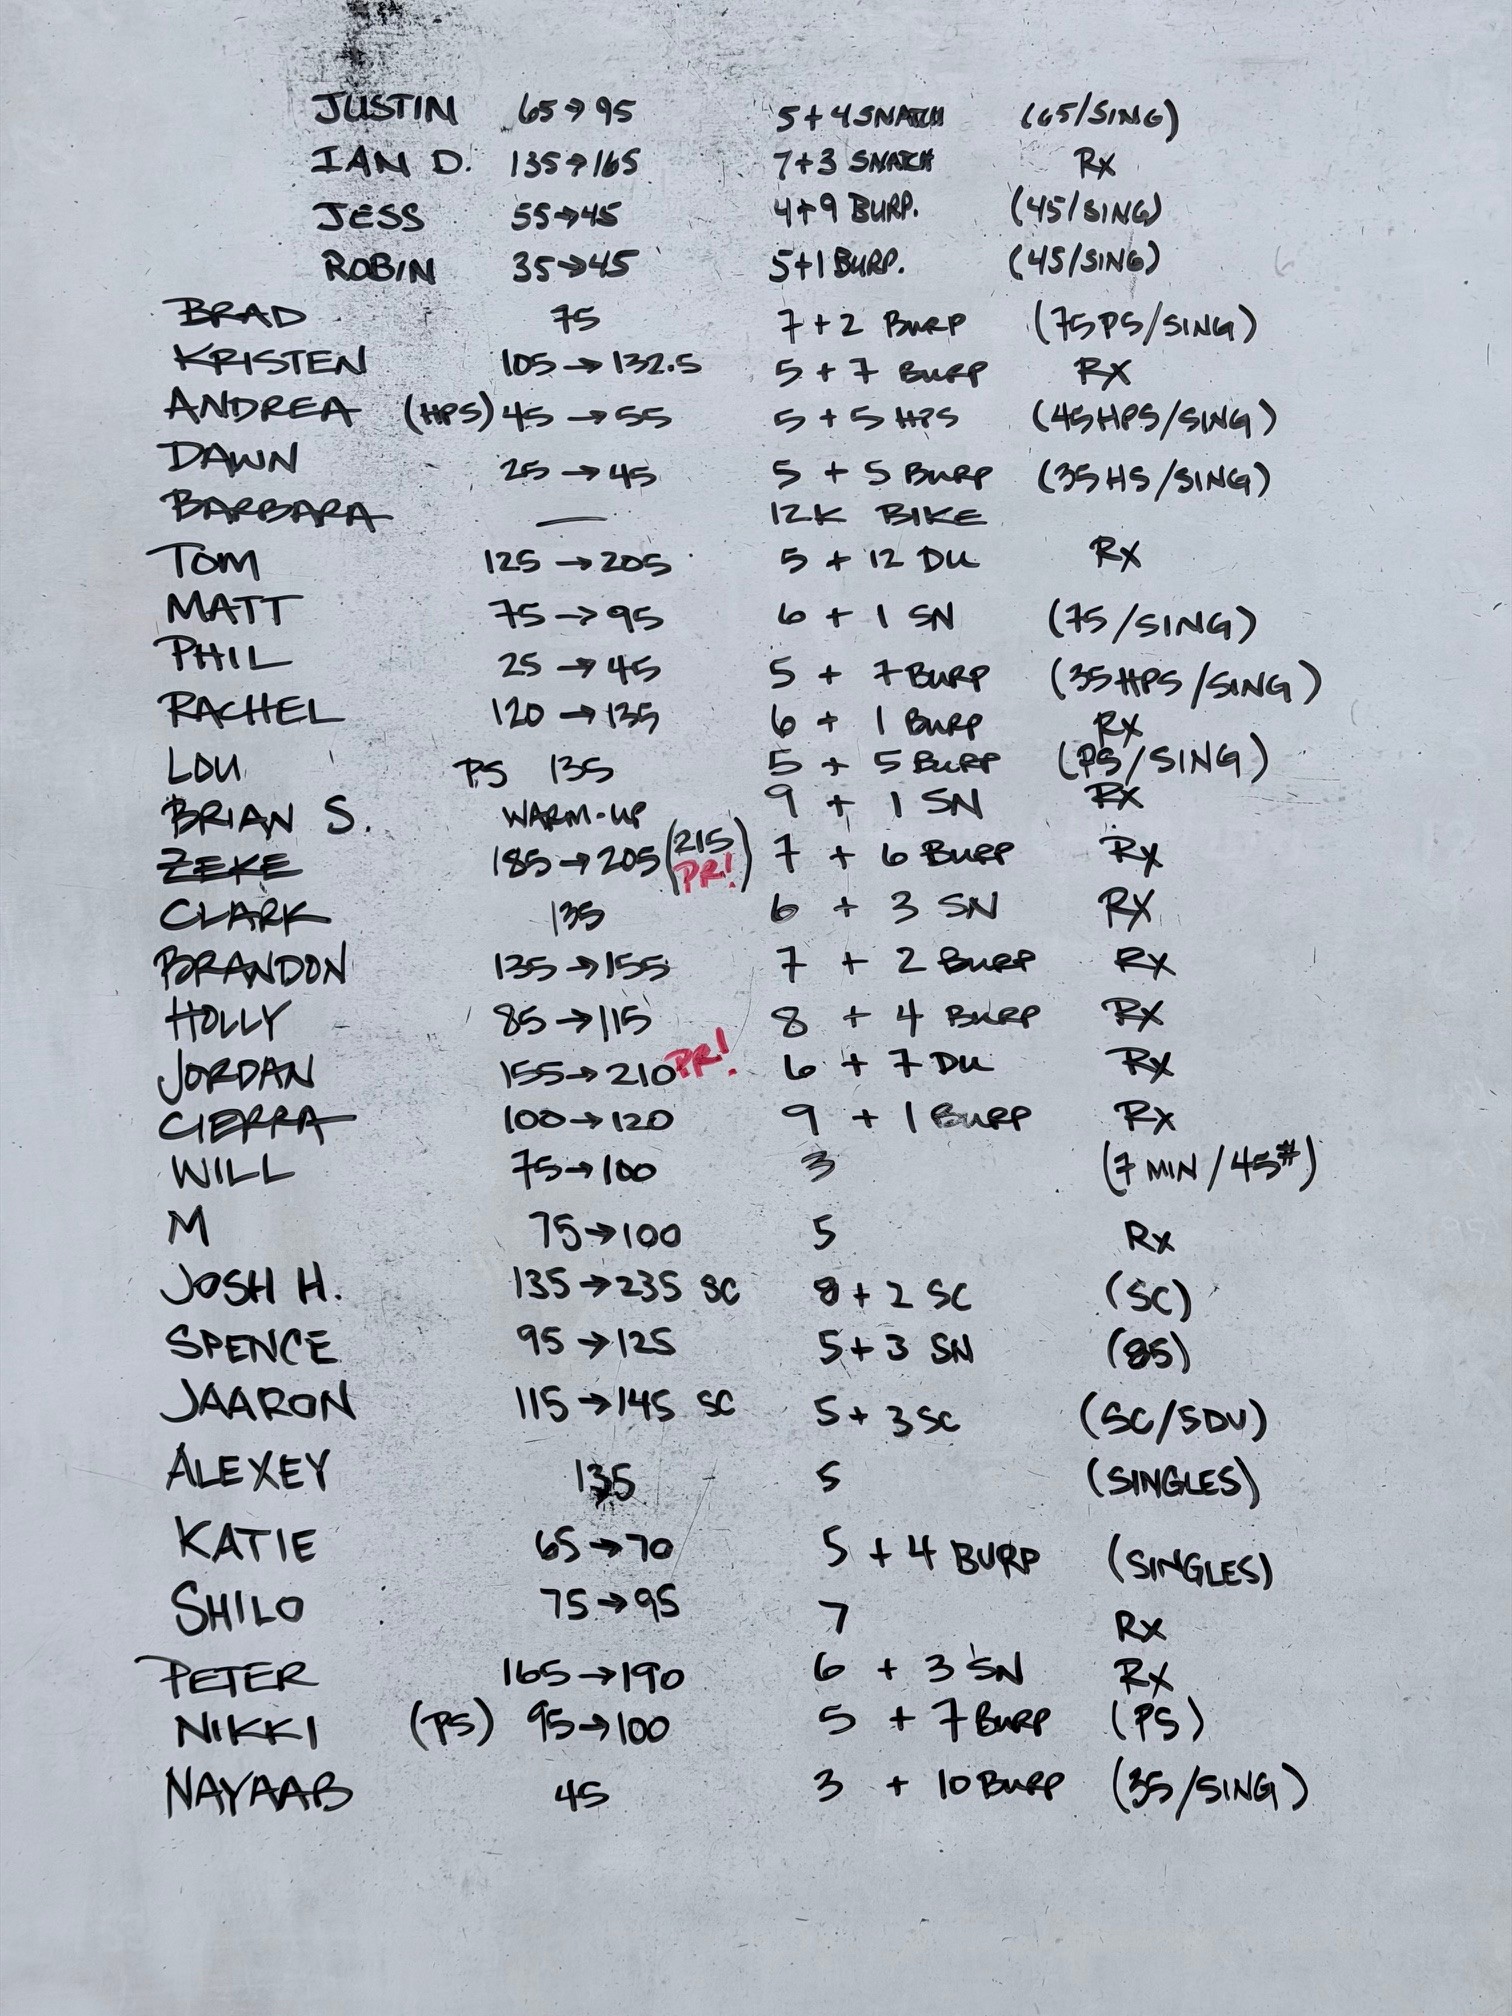 JUSTIN 65→95 5+4 SNATCH (65/SING)
IAN D. 135→165 7+3 SNATCH Rx
JESS 55→45 4+9 BURP. (45/SING)
ROBIN 35→45 5+1 BURP. (45/SING)
BRAD 75 7+2 BURP (75PS/SING)
KRISTEN 105→132.5 5+7 BURP RX
ANDREA (HPS) 45→55 5+5 HPS (45HPS/SING)
DAWN 25→45 5+5 BURP (35HS/SING)
BARBARA — 12K BIKE
TOM 125→205 5+12 DU RX
MATT 75→95 6+1 SN (75/SING)
PHIL 25→45 5+7 BURP (35HPS/SING)
RACHEL 120→135 6+1 BURP RX
LOU PS 135 5+5 BURP (PS/SING)
BRIAN S. WARM-UP 9+1 SN RX
ZEKE 185→205 (215 PR!) 7+6 BURP RX
CLARK 135 6+3 SN RX
BRANDON 135→155 7+2 BURP RX
HOLLY 85→115 8+4 BURP RX
JORDAN 155→210 PR! 6+7 DU RX
CIERRA 100→120 9+1 BURP RX
WILL 75→100 3 (7 MIN/45#)
M 75→100 5 Rx
JOSH H. 135→235 SC 8+2 SC (SC)
SPENCE 95→125 5+3 SN (85)
JAARON 115→145 SC 5+3 SC (SC/SDU)
ALEXEY 135 5 (SINGLES)
KATIE 65→70 5+4 BURP (SINGLES)
SHILO 75→95 7 Rx
PETER 165→190 6+3 SN RX
NIKKI (PS) 95→100 5+7 BURP (PS)
NAYAAB 45 3+10 BURP (35/SING)